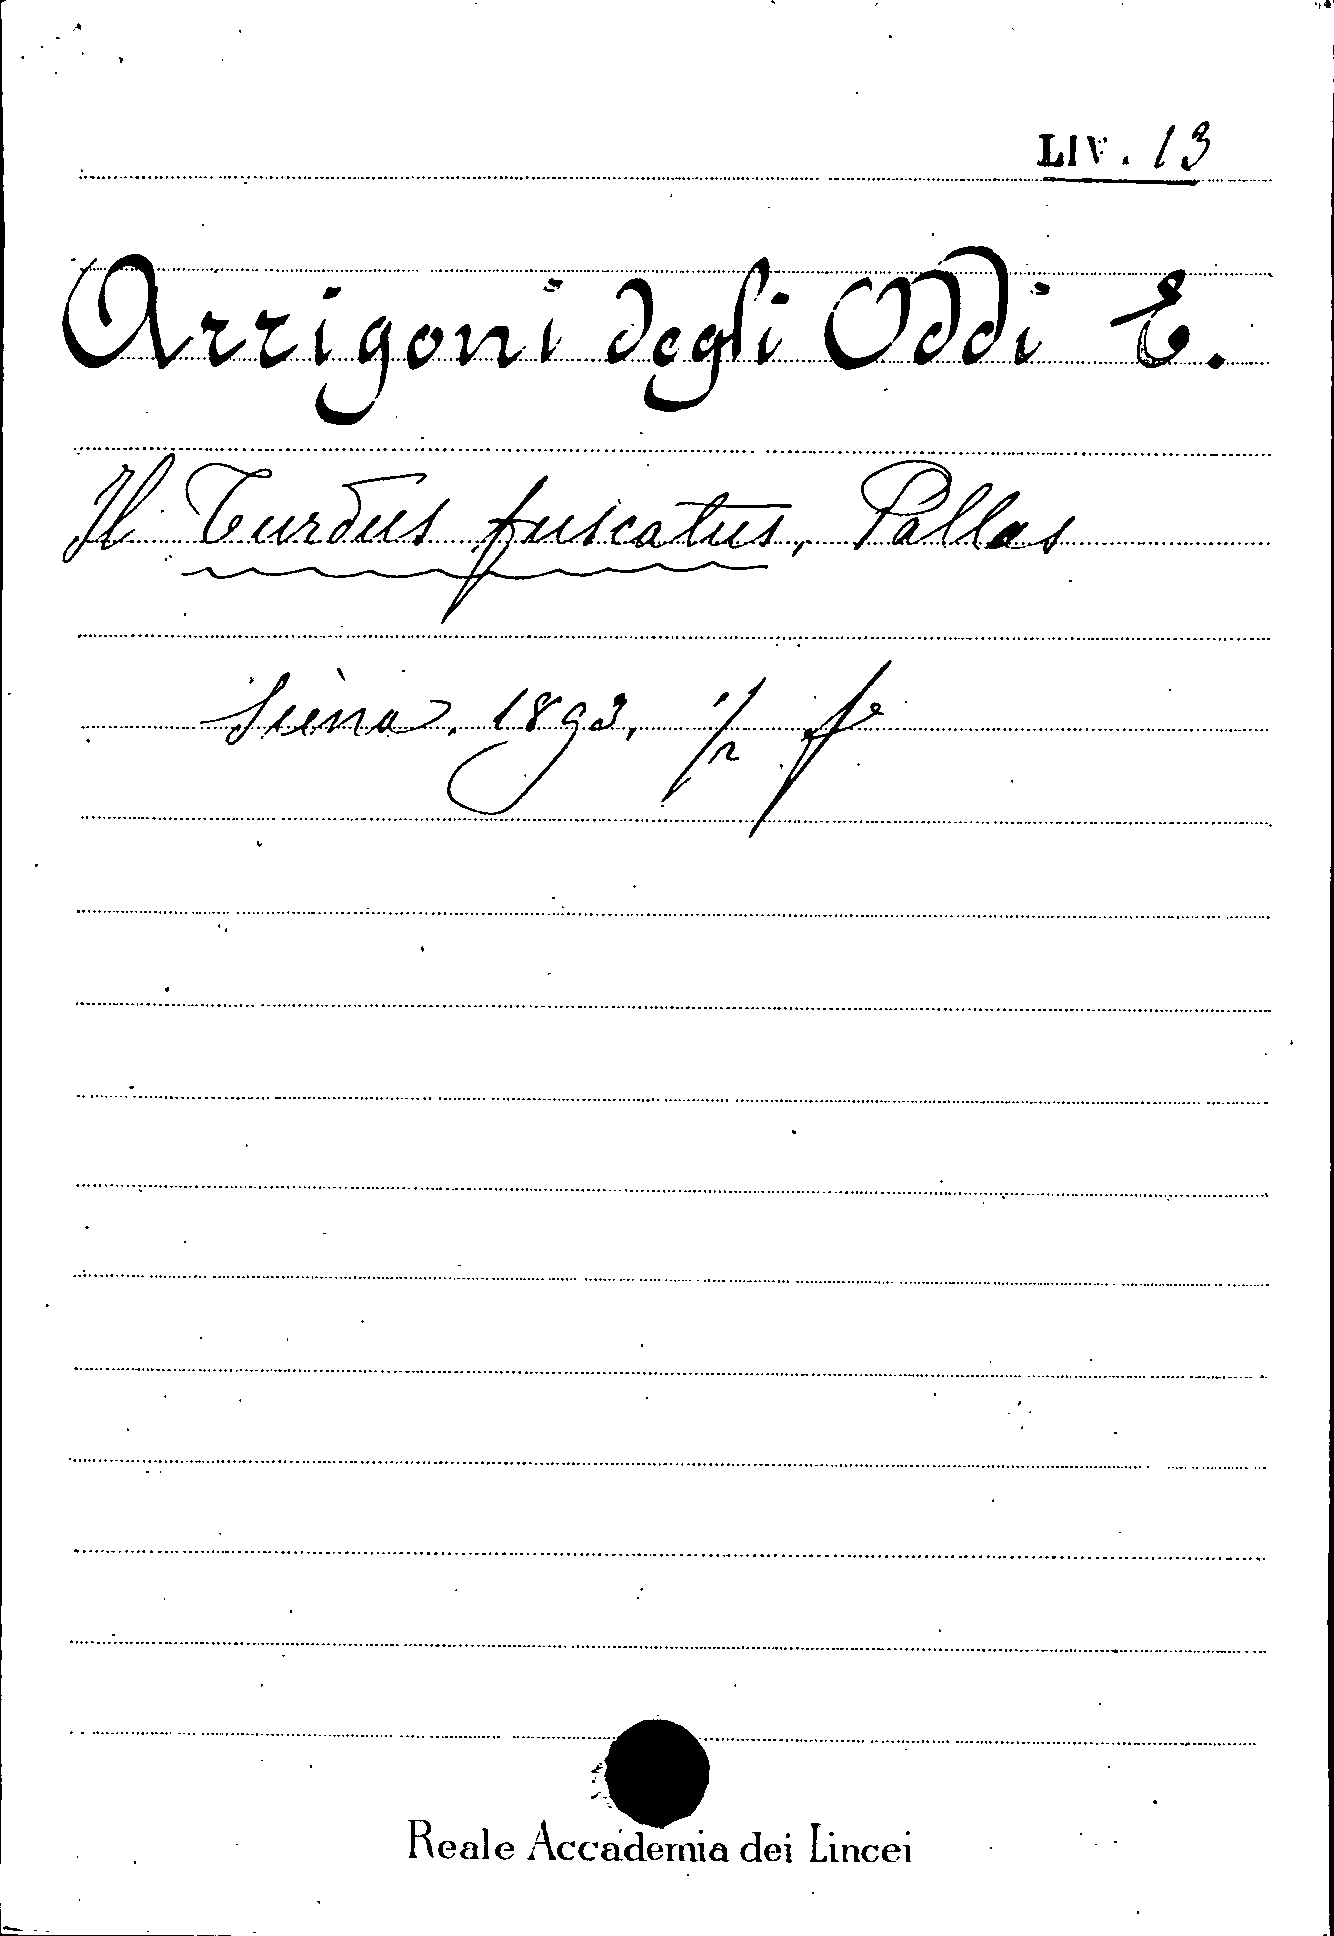 LIV. 13
Arrigoni degli Oddi E.
Il Turdus fuscatus, Pallas
Siena. 1893,
Reale Accademia dei Lincei